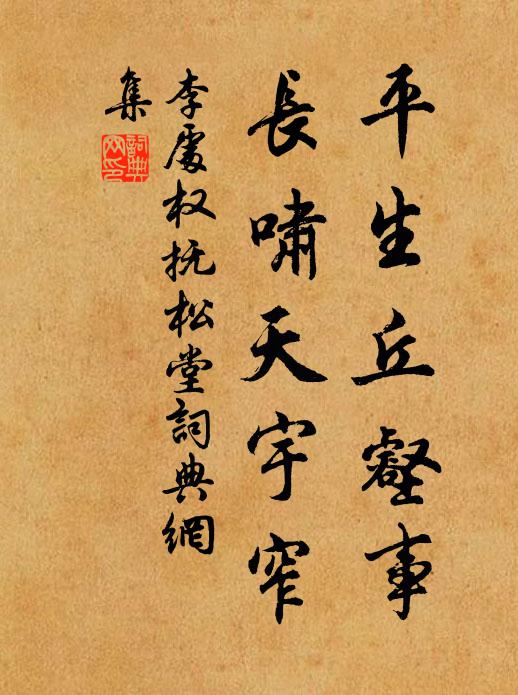 平生丘壑事
長嘯天宇窄
李處权抚松堂詞典網
集
詞典網印